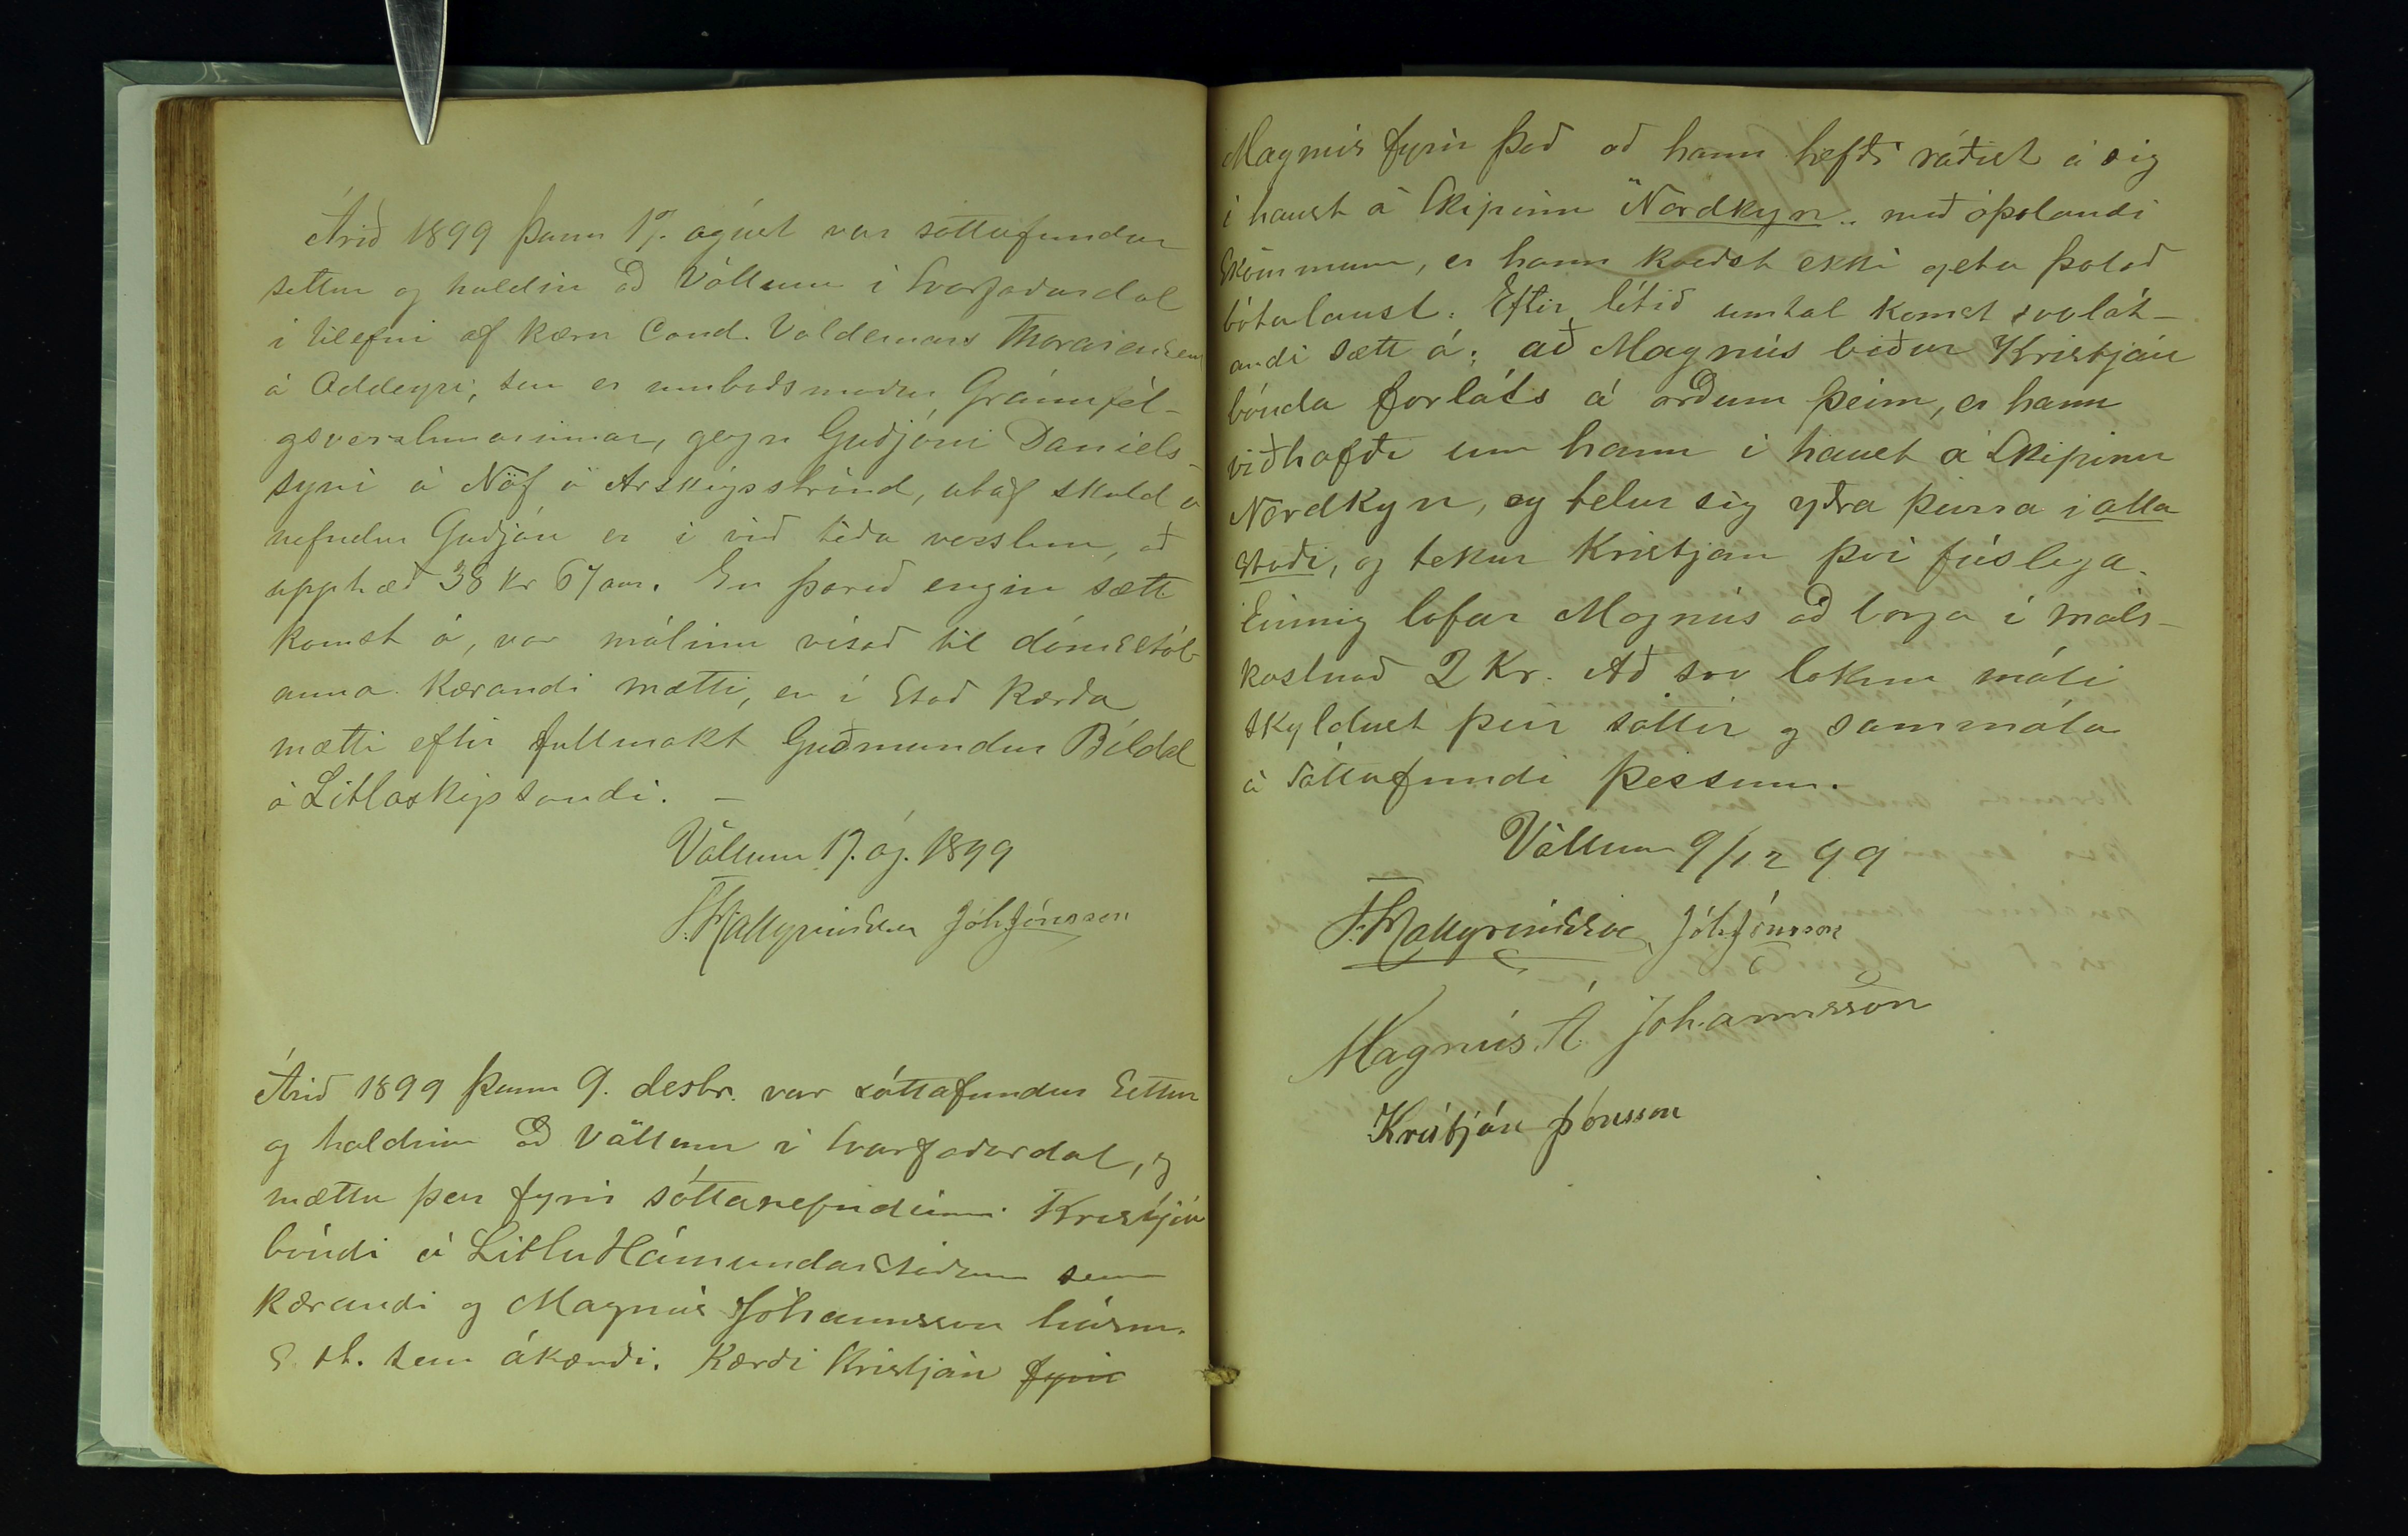 Árið 1899 þann 17. ágúst var sáttafundur
settur og haldin að Völlum í Svarfaðardal
í tilefni af kæru Cand. Valdemars Thorarensens
á Oddeyri, sem er umboðsmaður Gránufél-
gsverslunarinnar, gegn Guðjóni Daniels-
syni á Nöf á Arskógsströnd, útaf skuld er
nefndur Guðjón er í við téða verslun, að
upphæð 38 kr 67 aur. En þareð engin sætt
komst á, var málinu vísað til dómstól-
anna. Kærandi mætti, en í stað kærða
mætti eftir fullmakt Guðmundur Bíldal
á Litlaskógssandi. –
Völlum 17. ág. 1899
T. Hallgrímsson Jóh. Jónsson
Árið 1899 þann 9. desbr. var sáttafundur settur
og haldinn að Völlum í Svarfaðardal, og
mættu þar fyrir sáttanefndinni Kristján
bóndi á Litlu Hámundarstöðum sem
kærandi og Magnús Jóhannsson húsm.
s. st. sem ákærði. Kærði Kristján fyrir
Magnús fyrir það að hann hefði ráðist á sig
í haust á skipinu "Nordkyn" með óþolandi
skömmum, er hann kvaðst ekki geta þolað
bótalaust. Eftir lítið umtal komst svolát-
andi sætt á: að Magnús biður Kristján
bónda forláts á orðum þeim, er hann
viðhafði um hann í haust á skipinu
Nordkyn, og telur sig yðra þeirra í alla
staði, og tekur Kristján því fúslega.
Einnig lofar Magnús að borga í máls-
kostnað 2 Kr. Að svo loknu máli
skyldust þeir sáttir og sammála
á sáttafundi þessum.
Völlum 9/12 99
T. Hallgrímsson Jóh. Jónsson
Magnús Á. Johannsson
Kristján Jónsson